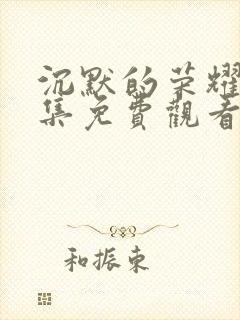 沉默的荣耀
集免費觀看
和振東